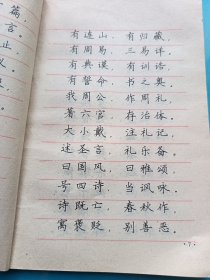 篇
言。
止
义
有连山，有归藏，
有周易，三易详。
有典谟，有训诰，
有誓命，书之奥。
我周公，作周礼，
著六官，存治体。
大小戴，注礼记，
述圣言，礼乐备。
曰国风，曰雅颂，
号四诗，当讽咏。
诗既亡，春秋作，
寓褒贬，别善恶。
·7·